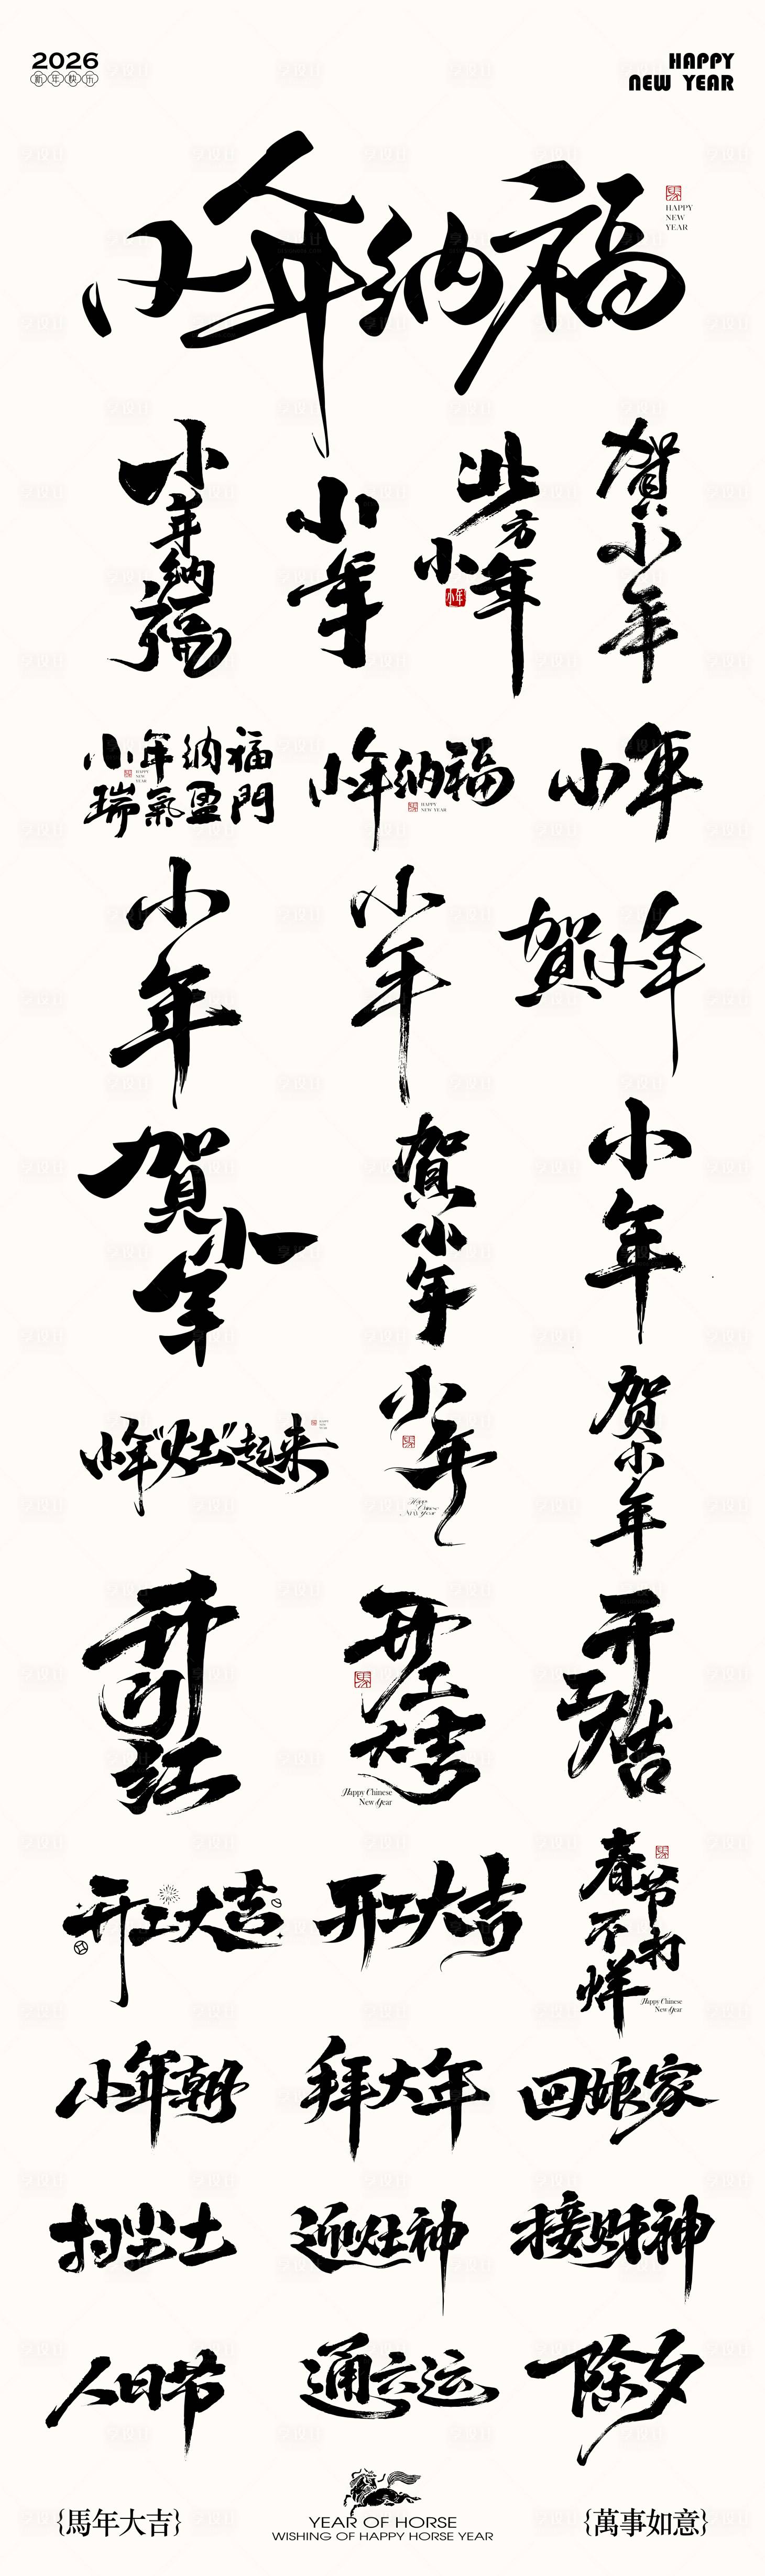 2026
新年快乐
HAPPY
NEW YEAR
小年纳福
HAPPY
NEW
YEAR
小年纳福
小年
北方小年
小年
贺小年
小年纳福
瑞氣盈門
HAPPY
NEW
YEAR
小年纳福
HAPPY
NEW YEAR
小年
小年
小年
賀小年
賀小年
賀小年
小年
小年"灶"起来
HAPPY
NEW
YEAR
小年
Happy
Chinese
New Year
贺小年
开门红
开工大吉
Happy Chinese
New Year
开工大吉
开工大吉
开工大吉
春节不打烊
Happy Chinese
New Year
小年朝
拜大年
回娘家
扫尘土
迎灶神
接财神
人日节
通六运
除夕
{馬年大吉}
YEAR OF HORSE
WISHING OF HAPPY HORSE YEAR
{萬事如意}